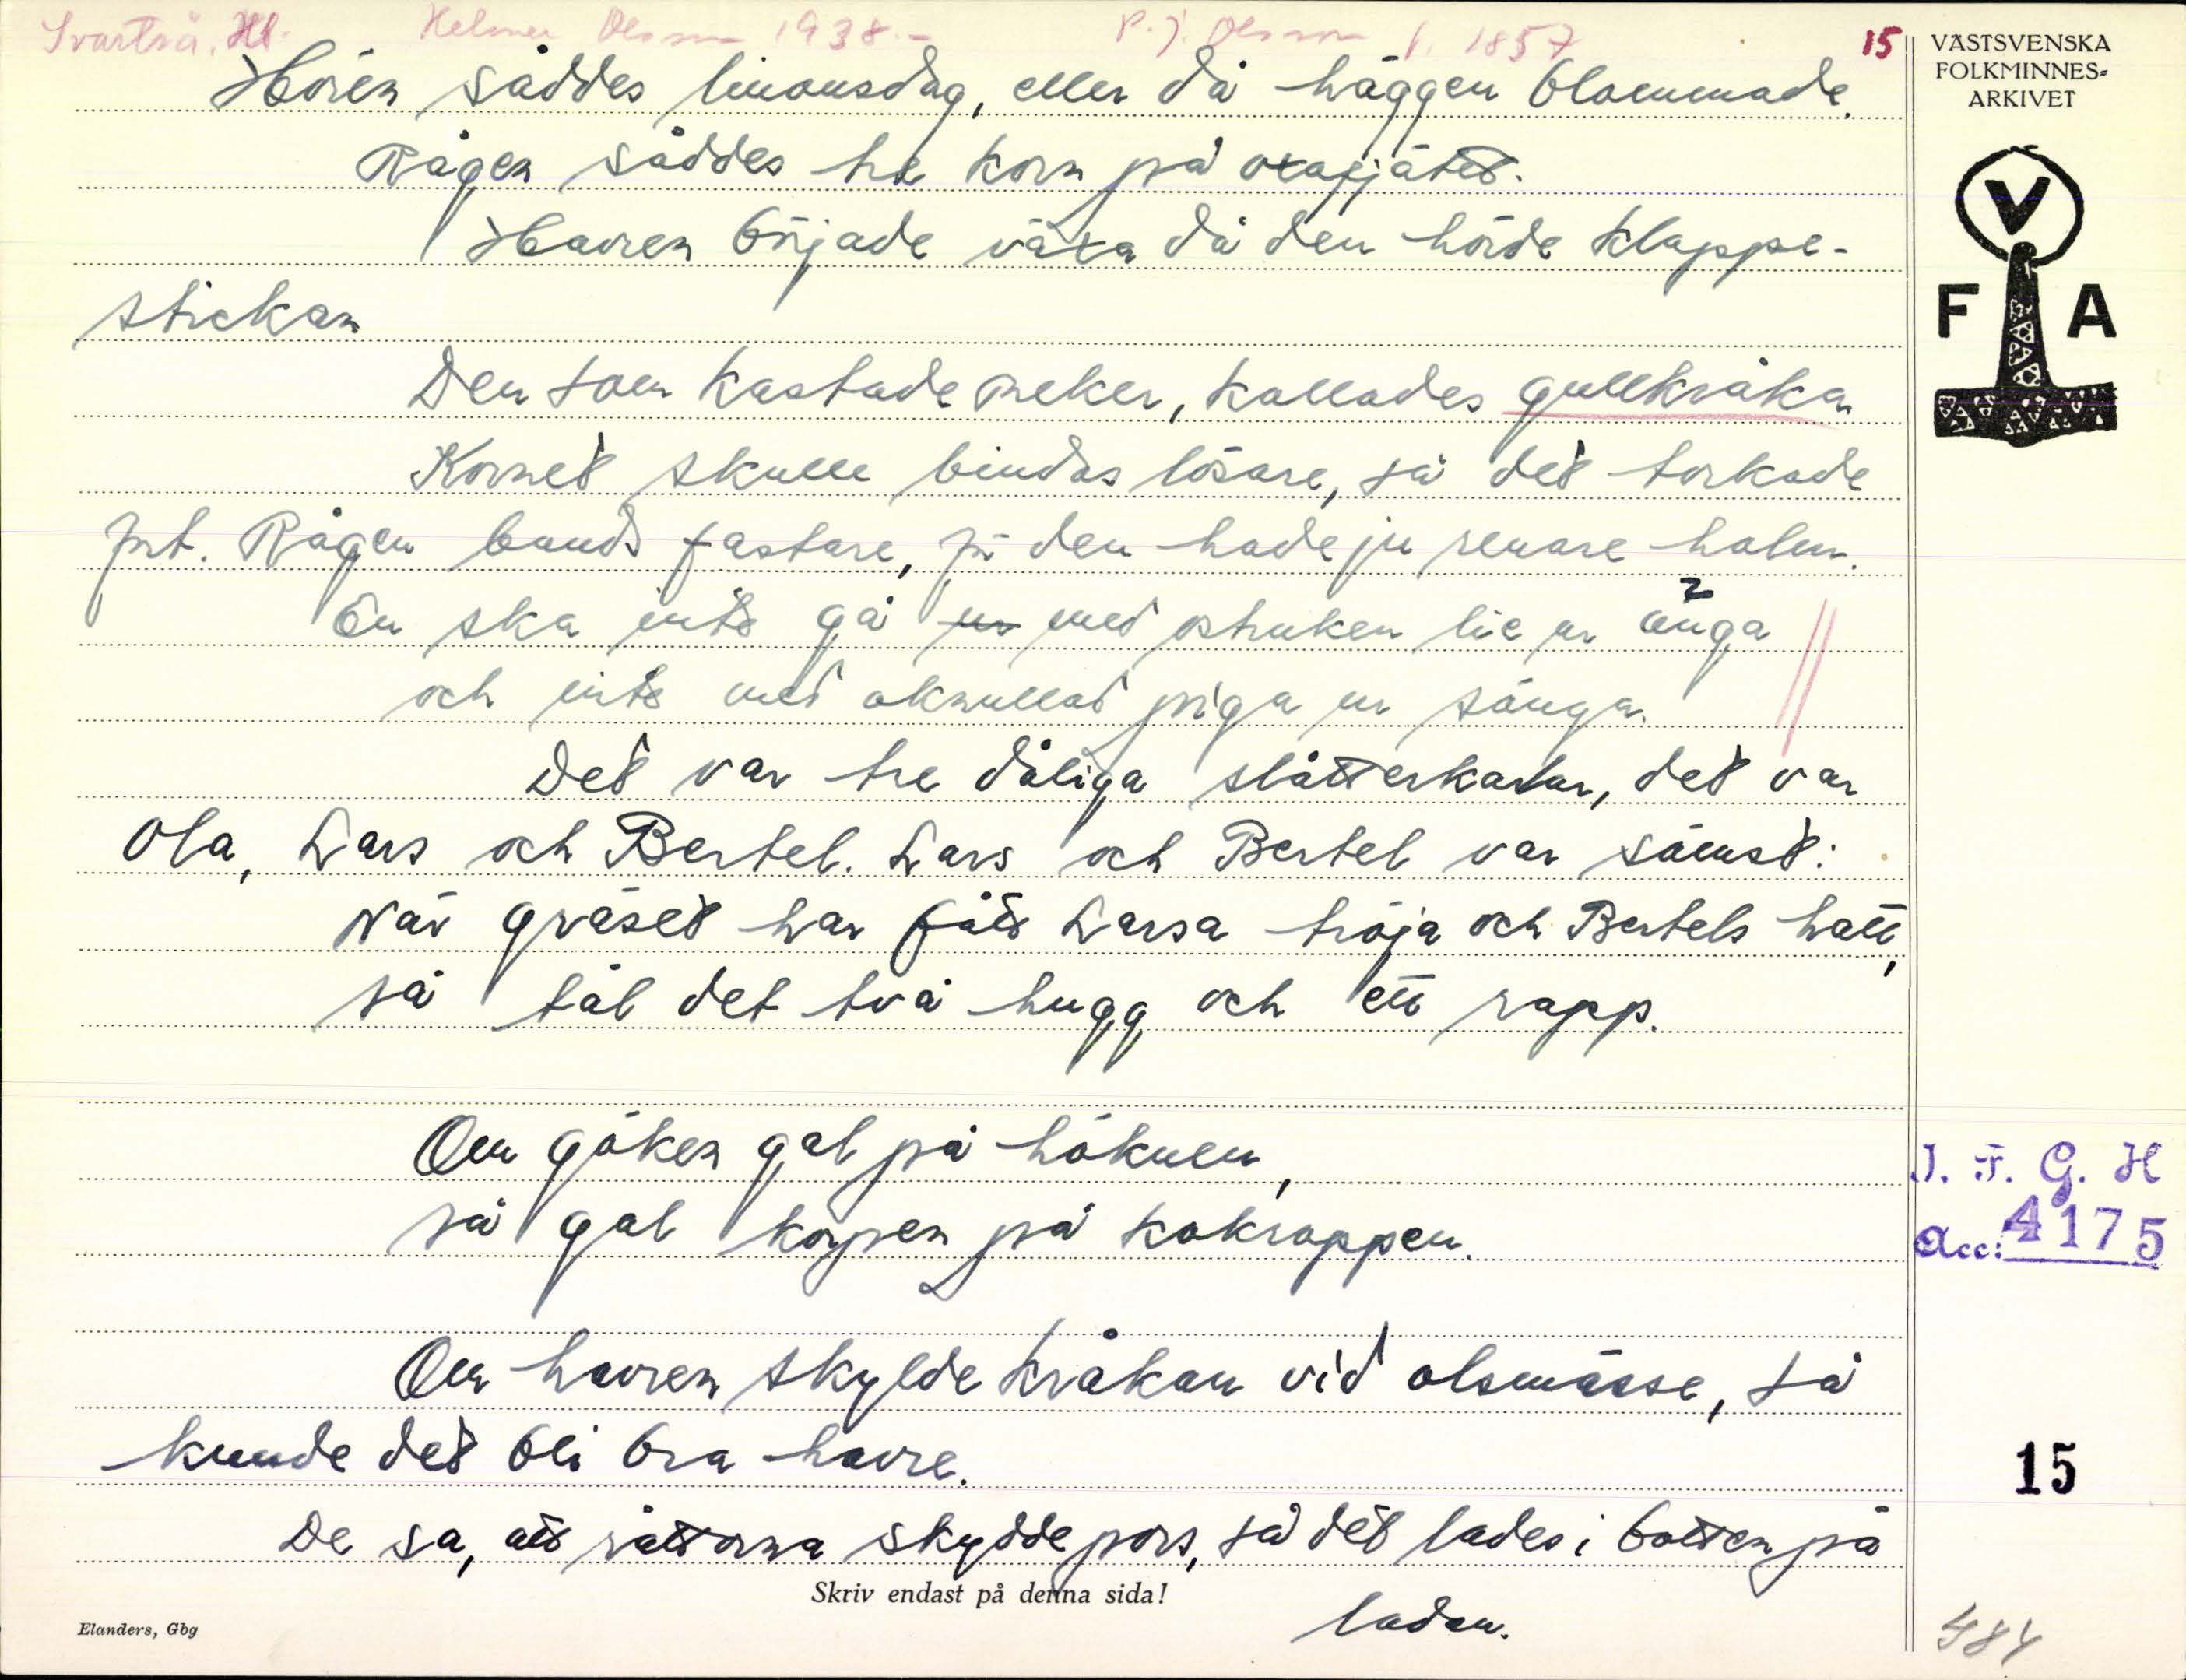 Svartrå, Hl. Helmer Olsson 1938.- P. J. Olsson f. 1857 15
VÄSTSVENSKA
FOLKMINNES-
ARKIVET
V
F A
Hören såddes linonsdag, eller då häggen blommade.
Rågen såddes tre korn på oxafjätet.
Havren började växa då den hörde klappe-
stickan
Den som kastade neker, kallades gullkråka
Kornet skulle bindas lösare, så det torkade
fort. Rågen bands fastare, för den hade ju renare halm.
En ska inte gå ur med ostruken lie ur änga
och inte med oknullad piga ur sänga.
Det var tre dåliga slåtterkarlar, det var
Ola, Lars och Bertel. Lars och Bertel var sämst:
När gräset har fått Larsa tröja och Bertels hatt,
så tål det två hugg och ett rapp.
Om göken gal på höknen,
så gal korpen på kokroppen.
Om havren skylde kråkan vid olsmässe, så
kunde det bli bra havre.
De sa, att råttorna skydde pors, så det lades i botten på
ladan.
I. F. G. H
Acc: 4175
15
Skriv endast på denna sida!
Elanders, Gbg
484